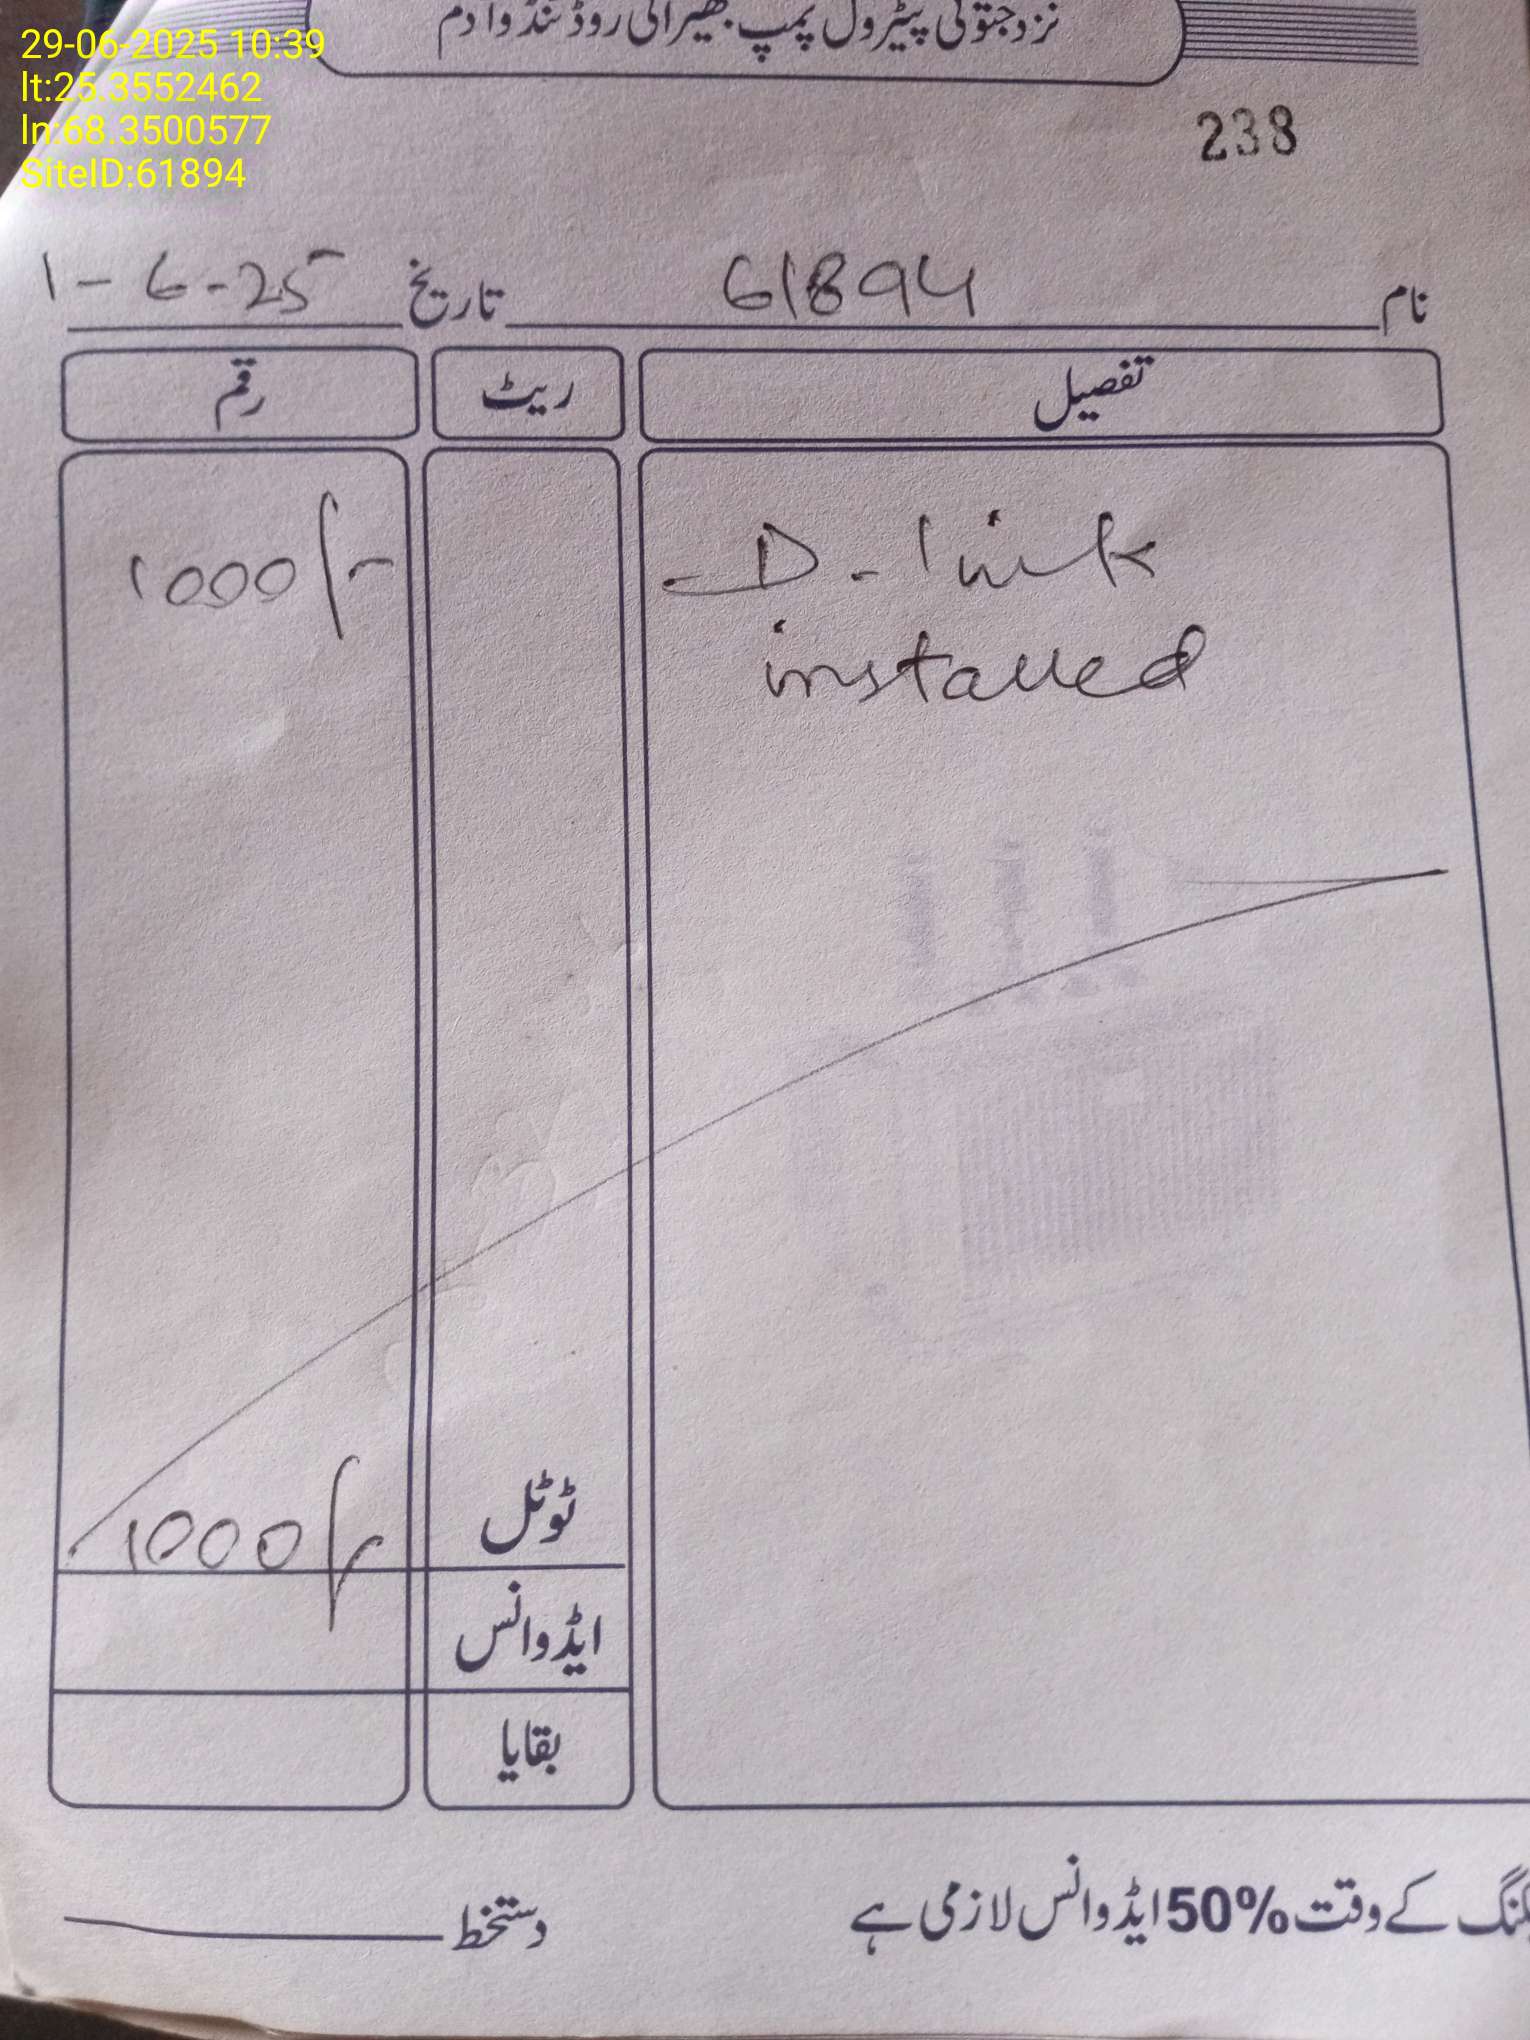 29-06-2025 10:39
lt:25.3552462
ln:68.3500577
SiteID:61894
نزد جتوئی پیٹرول پمپ بھیرانی روڈ ٹنڈوآدم
238
نام 61894 تاریخ 1-6-25
تفصیل ریٹ رقم
D-link 1000/-
installed
ٹوٹل 1000/-
ایڈوانس
بقایا
کے وقت 50% ایڈوانس لازمی ہے
دستخط